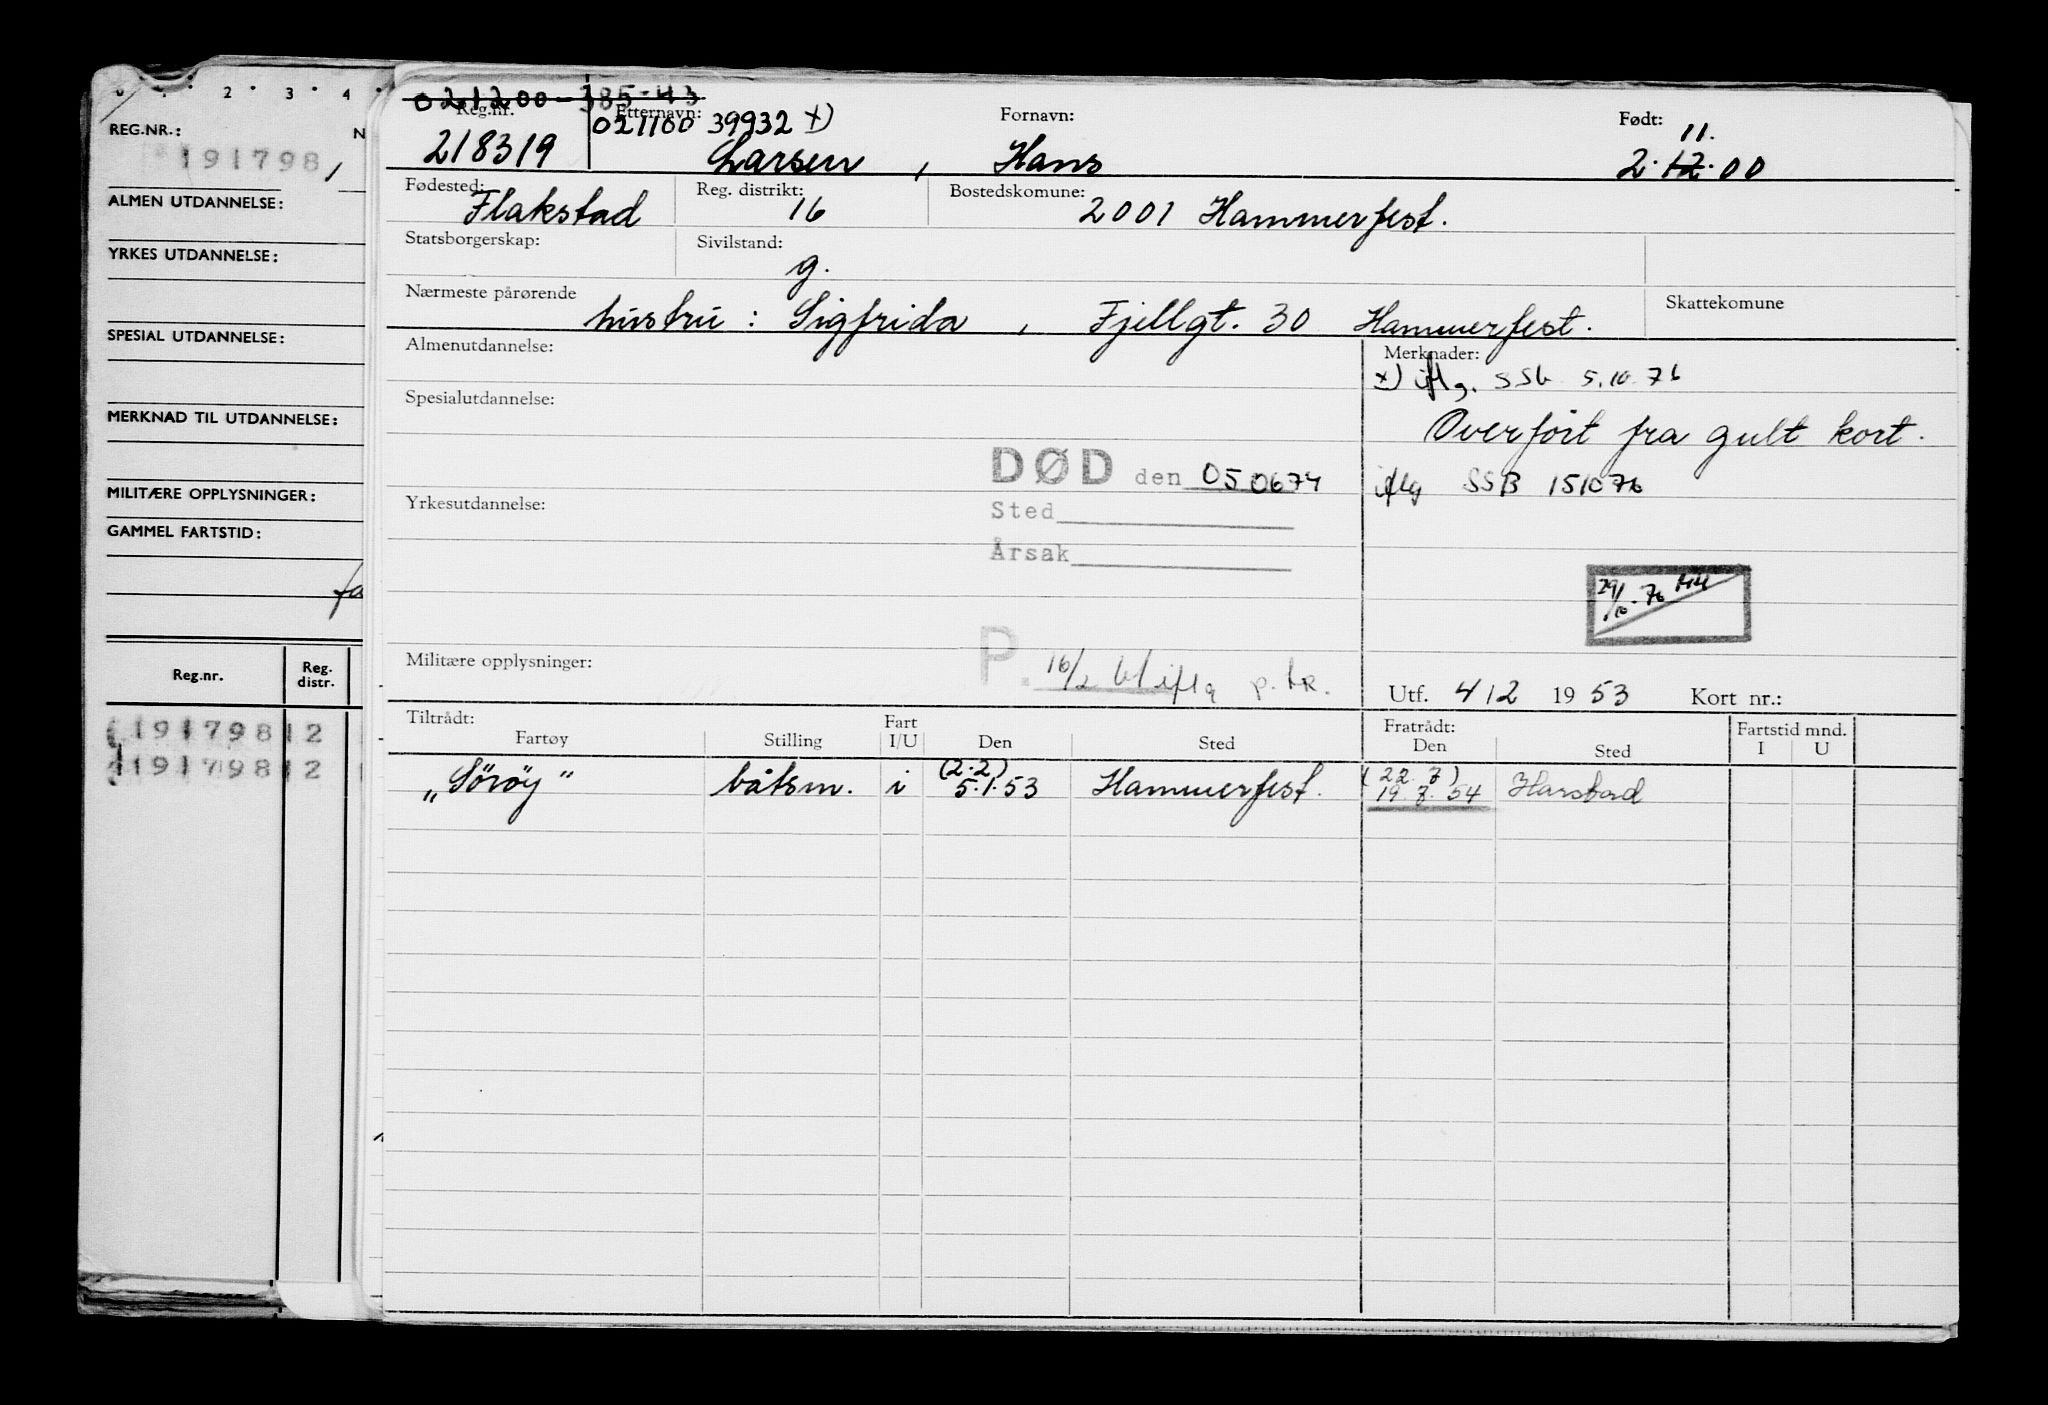 0 1 2 3 4
REG.NR.: N
191798,
ALMEN UTDANNELSE:
YRKES UTDANNELSE:
SPESIAL UTDANNELSE:
MERKNAD TIL UTDANNELSE:
MILITÆRE OPPLYSNINGER:
GAMMEL FARTSTID:
fa
Reg.nr. Reg. distr.
191798 12
191798 12
021200-385-43
Reg.nr. Etternavn: Fornavn: Født:
021100 39932 x) 11.
218319 Larsen, Hans 2.12.00
Fødested: Reg. distrikt: Bostedskomune:
Flakstad 16 2001 Hammerfest.
Statsborgerskap: Sivilstand:
g.
Nærmeste pårørende Skattekomune
hustru: Sigfrida, Fjellgt. 30 Hammerfest.
Almenutdannelse: Merknader:
x) iflg. SSb 5.10.76
Spesialutdannelse: Overført fra gult kort.
DØD den 050674 iflg SSB 151076
Yrkesutdannelse: Sted
Årsak
29/10-76
Militære opplysninger: P. 16/2 61 iflg p.tr.
Utf. 4/2 1953 Kort nr.:
Tiltrådt: Fart Fratrådt: Fartstid mnd.
Fartøy Stilling I/U Den Sted Den Sted I U
(2.2) (22.7)
„Söröy" båtsm. i 5.1.53 Hammerfest. 19.7.54 Harstad